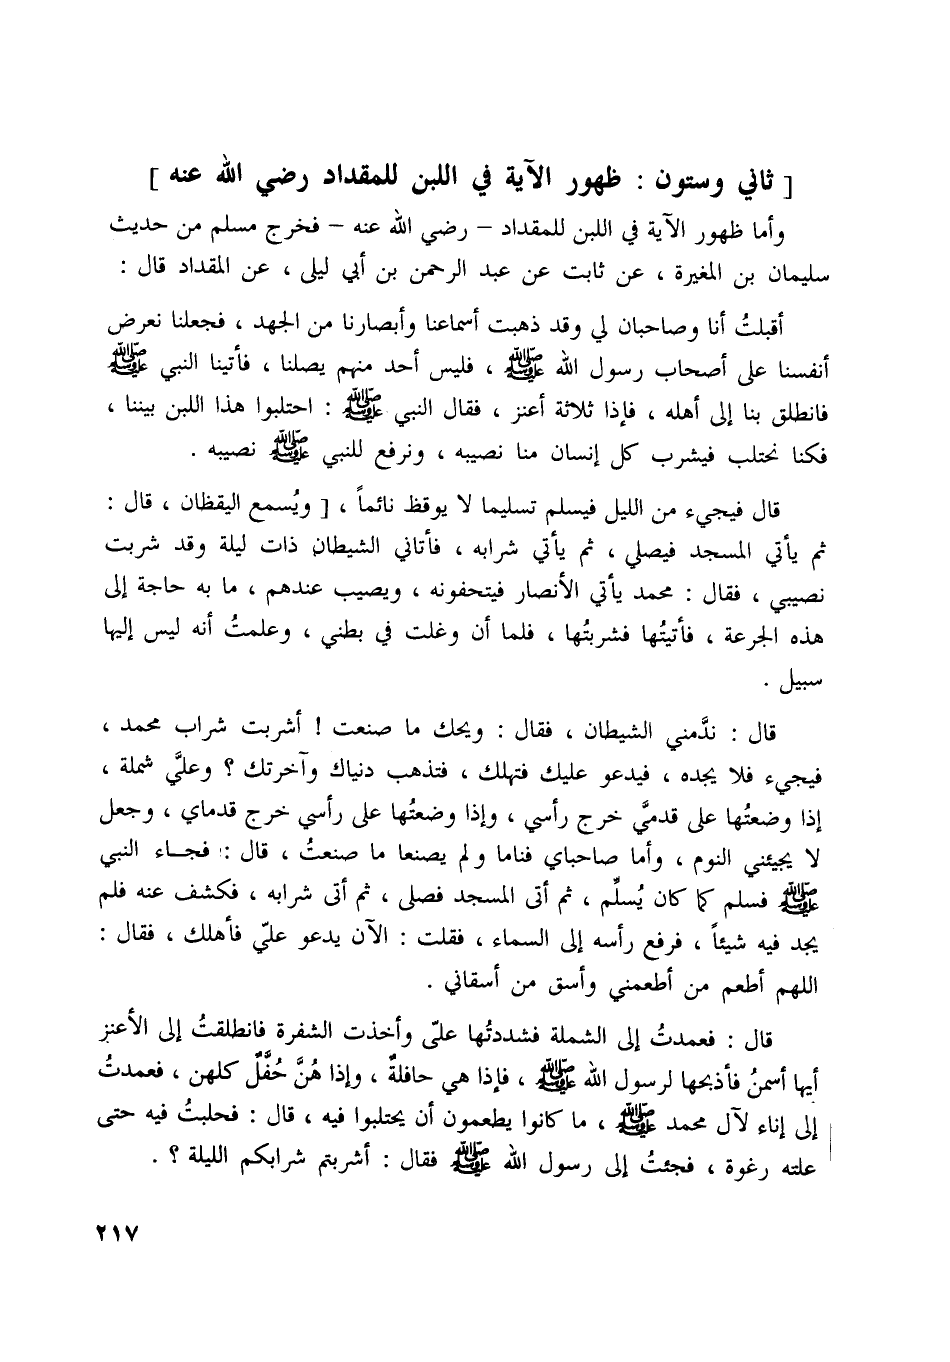 [ ثاني وستون : ظهور الآية في اللبن للمقداد رضي الله عنه ]
وأما ظهور الآية في اللبن للمقداد – رضي الله عنه – فخرج مسلم من حديث
سليمان بن المغيرة ، عن ثابت عن عبد الرحمن بن أبي ليلى ، عن المقداد قال :
أقبلتُ أنا وصاحبان لي وقد ذهبت أسماعنا وأبصارنا من الجهد ، فجعلنا نعرض
أنفسنا على أصحاب رسول الله ﷺ ، فليس أحد منهم يصلنا ، فأتينا النبي ﷺ
فانطلق بنا إلى أهله ، فإذا ثلاثة أعنز ، فقال النبي ﷺ : احتلبوا هذا اللبن بيننا ،
فكنا نحتلب فيشرب كل إنسان منا نصيبه ، ونرفع للنبي ﷺ نصيبه .
قال فيجيء من الليل فيسلم تسليما لا يوقظ نائماً ، [ ويُسمع اليقظان ، قال :
ثم يأتي المسجد فيصلي ، ثم يأتي شرابه ، فأتاني الشيطان ذات ليلة وقد شربت
نصيبي ، فقال : محمد يأتي الأنصار فيتحفونه ، ويصيب عندهم ، ما به حاجة إلى
هذه الجرعة ، فأتيتُها فشربتُها ، فلما أن وغلت في بطني ، وعلمتُ أنه ليس إليها
سبيل .
قال : ندَّمني الشيطان ، فقال : ويحك ما صنعت ! أشربت شراب محمد ،
فيجيء فلا يجده ، فيدعو عليك فتهلك ، فتذهب دنياك وآخرتك ؟ وعليَّ شملة ،
إذا وضعتُها على قدميَّ خرج رأسي ، وإذا وضعتُها على رأسي خرج قدماي ، وجعل
لا يجيئني النوم ، وأما صاحباي فناما ولم يصنعا ما صنعتُ ، قال : فجاء النبي
ﷺ فسلم كما كان يُسلِّم ، ثم أتى المسجد فصلى ، ثم أتى شرابه ، فكشف عنه فلم
يجد فيه شيئاً ، فرفع رأسه إلى السماء ، فقلت : الآن يدعو عليّ فأهلك ، فقال :
اللهم أطعم من أطعمني وأسق من أسقاني .
قال : فعمدتُ إلى الشملة فشددتُها عليّ وأخذت الشفرة فانطلقتُ إلى الأعنز
أيها أسمنُ فأذبحها لرسول الله ﷺ ، فإذا هي حافلةٌ ، وإذا هُنَّ حُفَّلٌ كلهن ، فعمدتُ
إلى إناء لآل محمد ﷺ ، ما كانوا يطعمون أن يحتلبوا فيه ، قال : فحلبتُ فيه حتى
علته رغوة ، فجئتُ إلى رسول الله ﷺ فقال : أشربتم شرابكم الليلة ؟ .
٢١٧